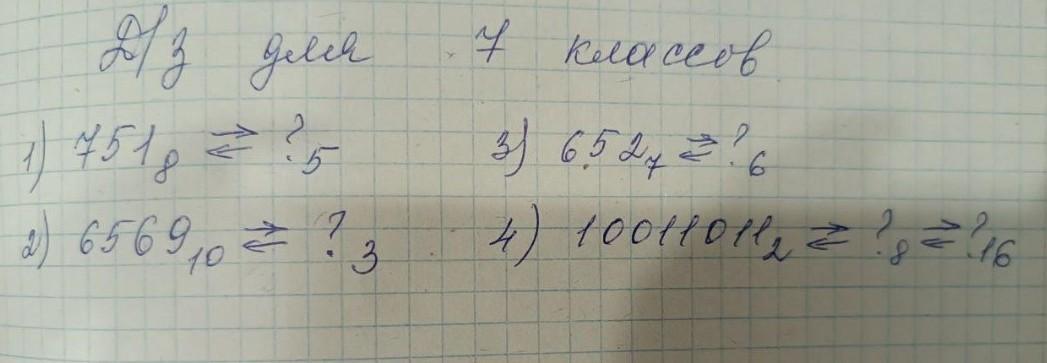 Д/з для 7 классов
1) 751₈ ⇄ ?₅ 3) 652₇ ⇄ ?₆
2) 6569₁₀ ⇄ ?₃ 4) 10011011₂ ⇄ ?₈ ⇄ ?₁₆